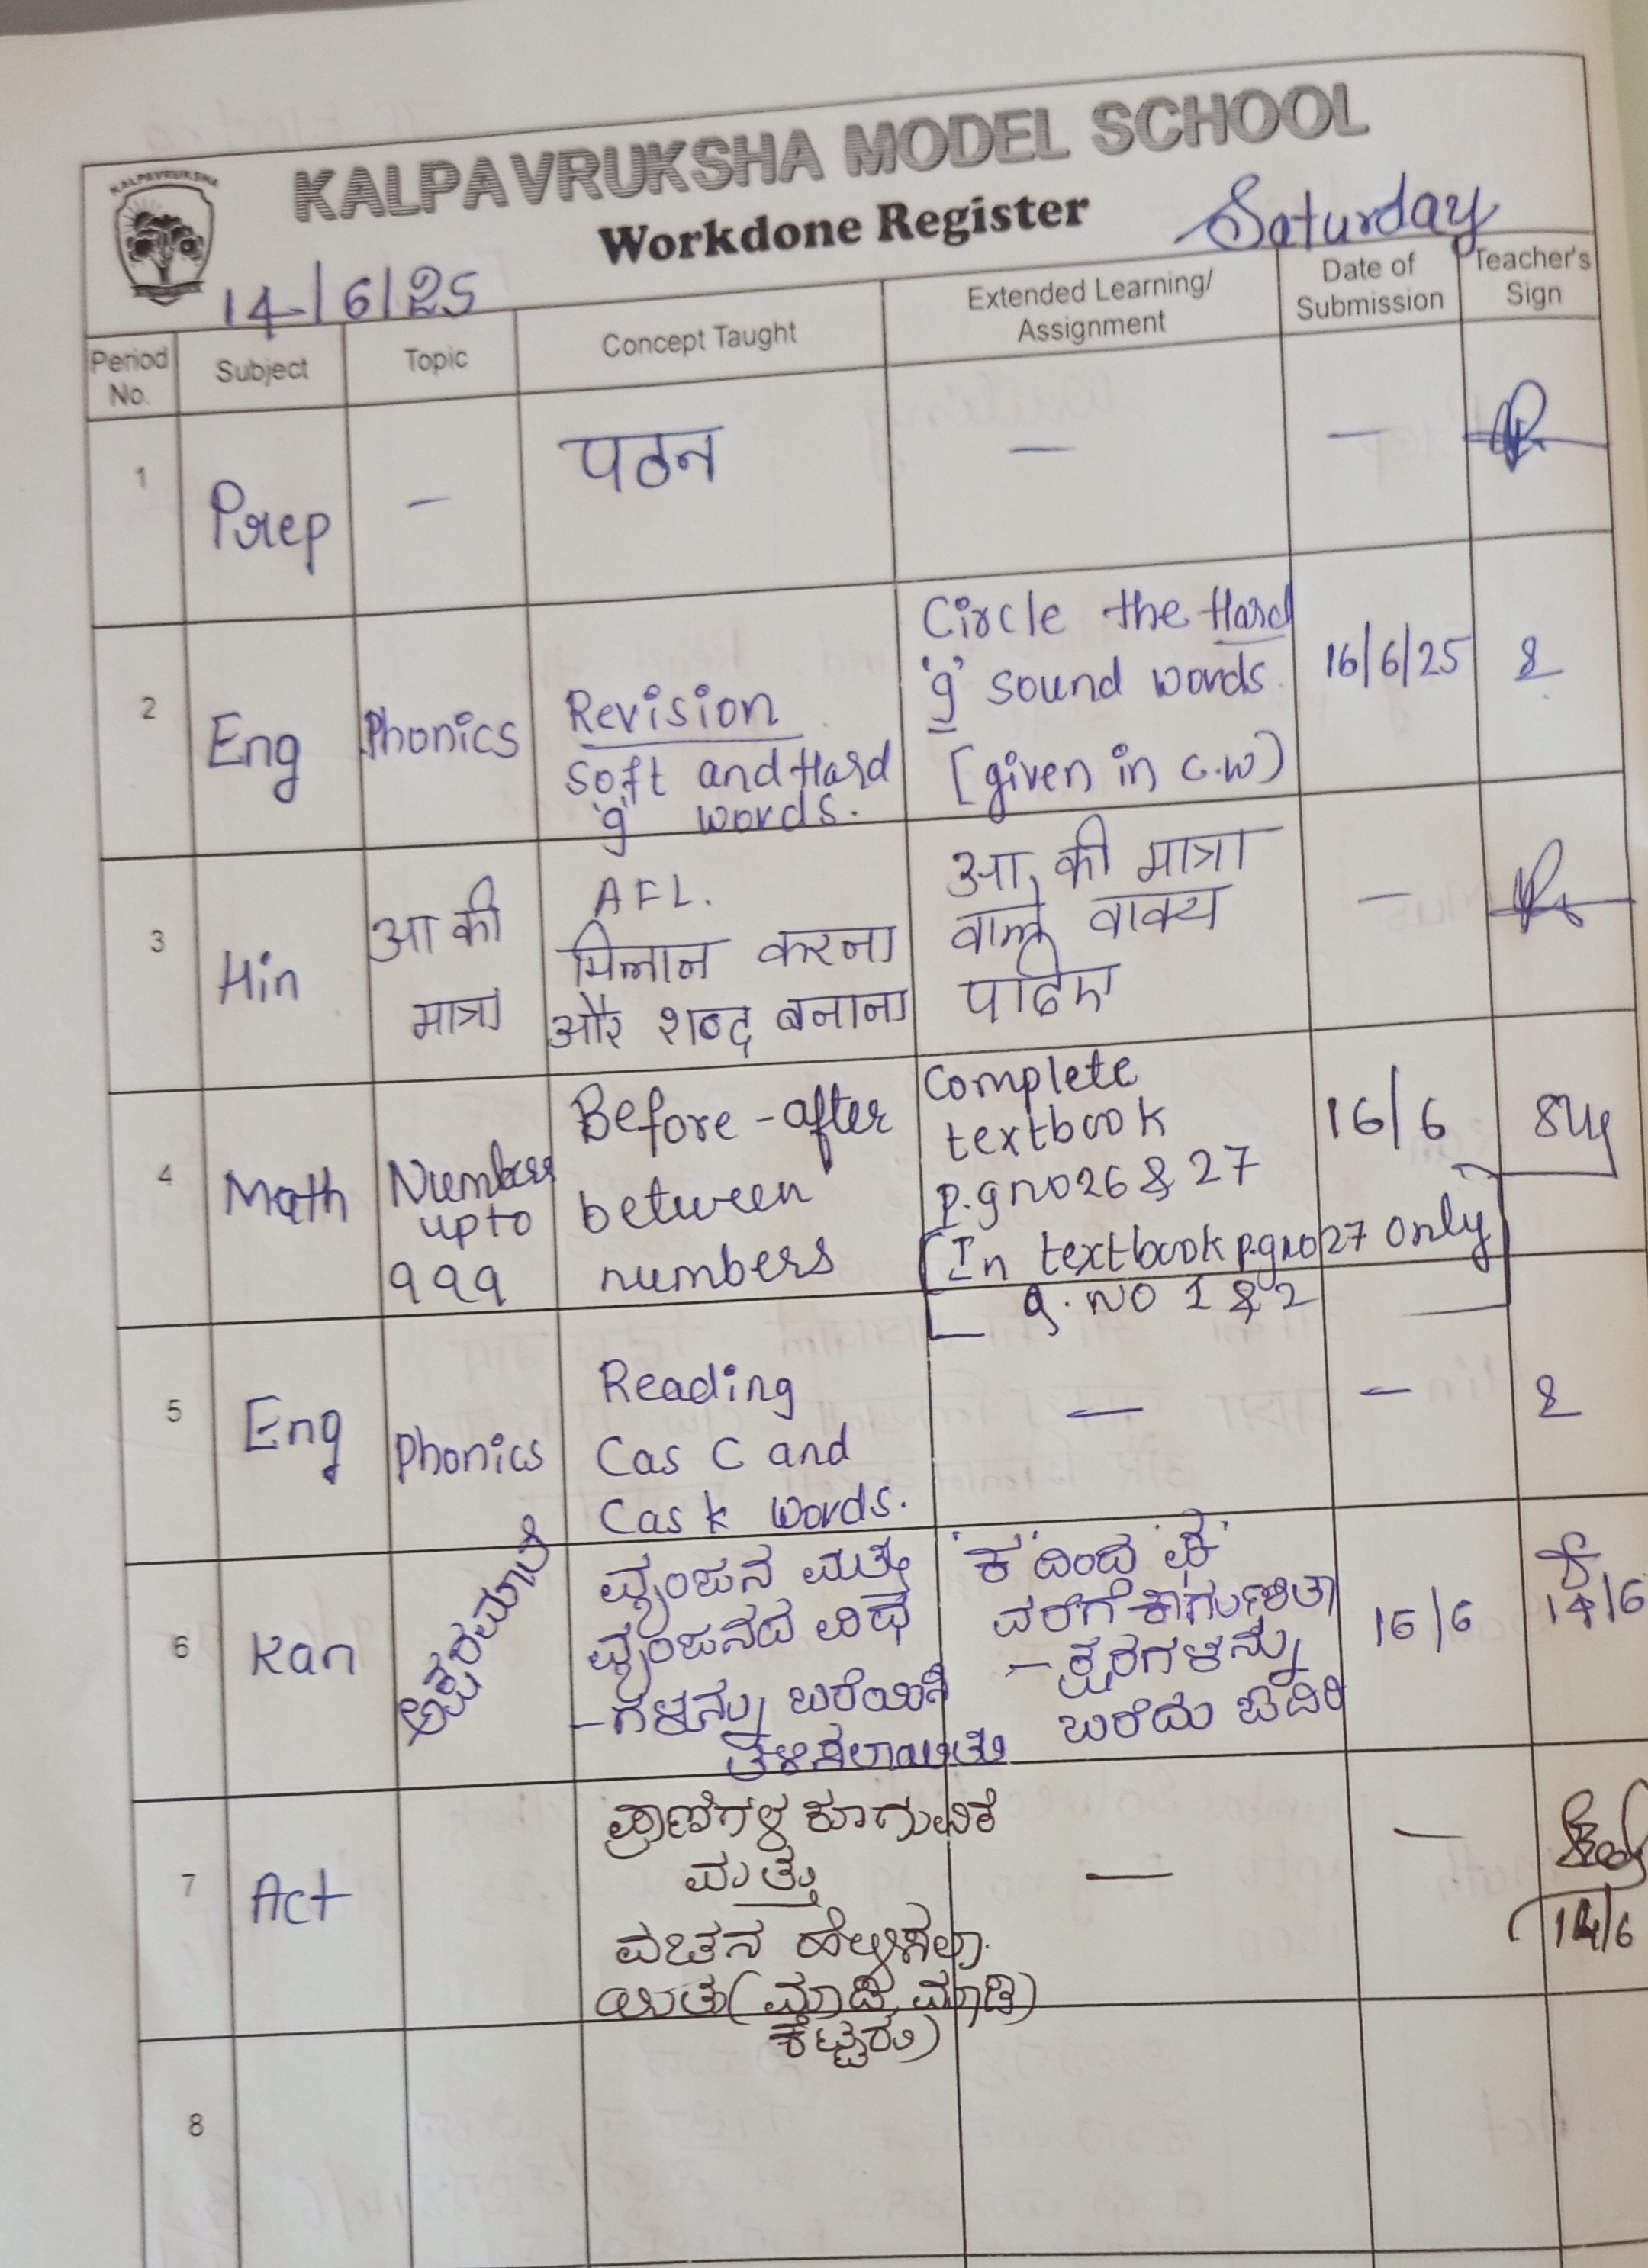 KALPAVRUKSHA
KALPAVRUKSHA MODEL SCHOOL
Workdone Register
Saturday
14/6/25
Period No.
Subject
Topic
Concept Taught
Extended Learning/ Assignment
Date of Submission
Teacher's Sign
1
Prep
—
पठन
—
—
2
Eng
Phonics
Revision
Soft and Hard
'g' words.
Circle the Hard
'g' sound words.
[given in c.w)
16/6/25
3
Hin
आ की
मात्रा
AFL.
मिलान करना
और शब्द बनाना
आ की मात्रा
वाले वाक्य
पढिए
—
4
Math
Numbers
upto
999
Before - after
between
numbers
Complete
textbook
p.gno26 & 27
[In textbook p.gno27 only
q.no 1 & 2
16/6
5
Eng
Phonics
Reading
C as C and
C as k words.
—
—
6
Kan
ಅಕ್ಷರಮಾಲೆ
ವ್ಯಂಜನ ಮತ್ತು
ವ್ಯಂಜನದ ವಿಧ
-ಗಳನ್ನು ಬರೆಯಿಸಿ
ತಿಳಿಸಲಾಯಿತು
'ಕ'ದಿಂದ
ವರೆಗೆ ಕಾಗುಣಿತಾ
-ಕ್ಷರಗಳನ್ನು
ಬರೆದು ಓದಿರಿ
16/6
14/6
7
Act
ಪ್ರಾಣಿಗಳ ಕೂಗುವಿಕೆ
ಮತ್ತು
ವಚನ ಹೇಳಿಸಲಾ
ಯಿತು (ಮಾಡಿ ಮಾಡಿ
ಕೆಟ್ಟರು)
—
—
14/6
8